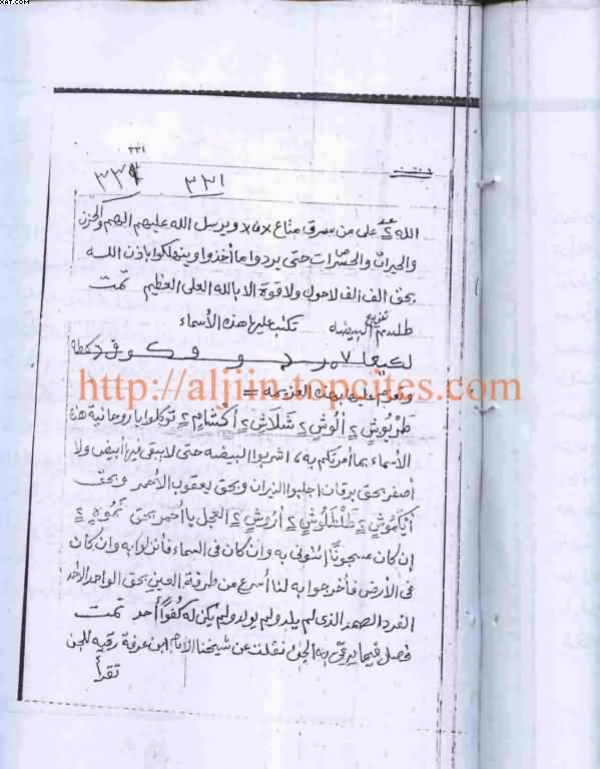 XAT.COM
٣٣١
٣٣١ ٢٢١
الله ع على من سرق متاع ويرسل الله عليهم الهم والحزن
والحيران والحسرات حتى يردوا ما أخذوا وينهلكوا باذن الله
بحق الف الف لاحول ولا قوة الا بالله العلي العظيم تمت
طلسم البيضه تكتب عليها هذه الأسماء
http://aljiin.topcites.com
وتعزم عليه بهذه العزيمه =
طربوش ٢ الوش ٢ شلاش ٢ اكشام ٢ توكلوا يا روحانية هذه
الأسماء بما أمرتكم به اشربوا البيضه حتى لا يبقى فيها أبيض ولا
أصفر بحق برقان اجلبوا النيران وبحق يعقوب الأحمر وبحق
أيكموش ٢ طلشلكوش ٢ اروش ٢ العجل يا أحمر بحق تموه ٢
إن كان مسجونا ائتوني به وان كان في السماء فأنزلوا به وان كان
في الأرض فأخرجوا به لنا أسرع من طرفة العين بحق الواحد الأحد
الفرد الصمد الذي لم يلد ولم يولد ولم يكن له كفوا أحد تمت
فصل فيما يرقى به الجن نقلت عن شيخنا الامام ابن عرفة رقيه للجن
تقرأ